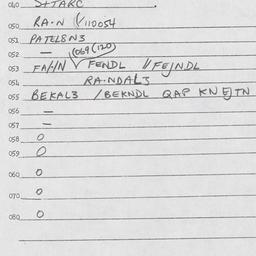 040 STTARC .
050 RA-N (/110054
051 PATELSN3
052 — (069(120)
053 FAHN FENDL //FEJNDL
054 RA-NDAL3
055 BEKAL3 /BEKNDL QAP KN EJTN
056 —
057 —
058 0
059 0
060 0
070 0
080 0